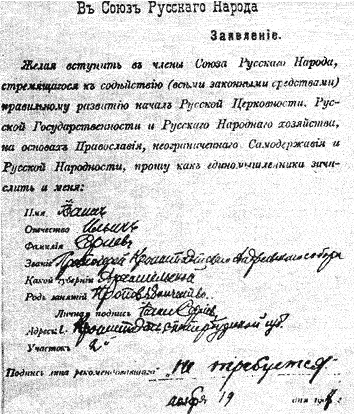 Въ Союзъ Русскаго Народа
Заявленіе.
Желая вступить въ члены Союза Русскаго Народа,
стремящагося къ содѣйствію (всѣми законными средствами)
правильному развитію началъ Русской Церковности, Рус-
ской Государственности и Русскаго Народнаго хозяйства,
на основахъ Православія, неограниченнаго Самодержавія и
Русской Народности, прошу какъ единомышленника зачи-
слить и меня:
Имя Іоаннъ
Отчество Ильичъ
Фамилія Сергіевъ
Званіе Протоіерей Кронштадтскаго Андреевскаго собора
Какой губерніи Архангельской
Родъ занятій Проповѣдничество
Личная подпись Іоаннъ Сергіевъ
Адресъ г. Кронштадтъ губ.
Участокъ 2
Подпись лица рекомендовавшаго не требуется
ноября 19 дня 190